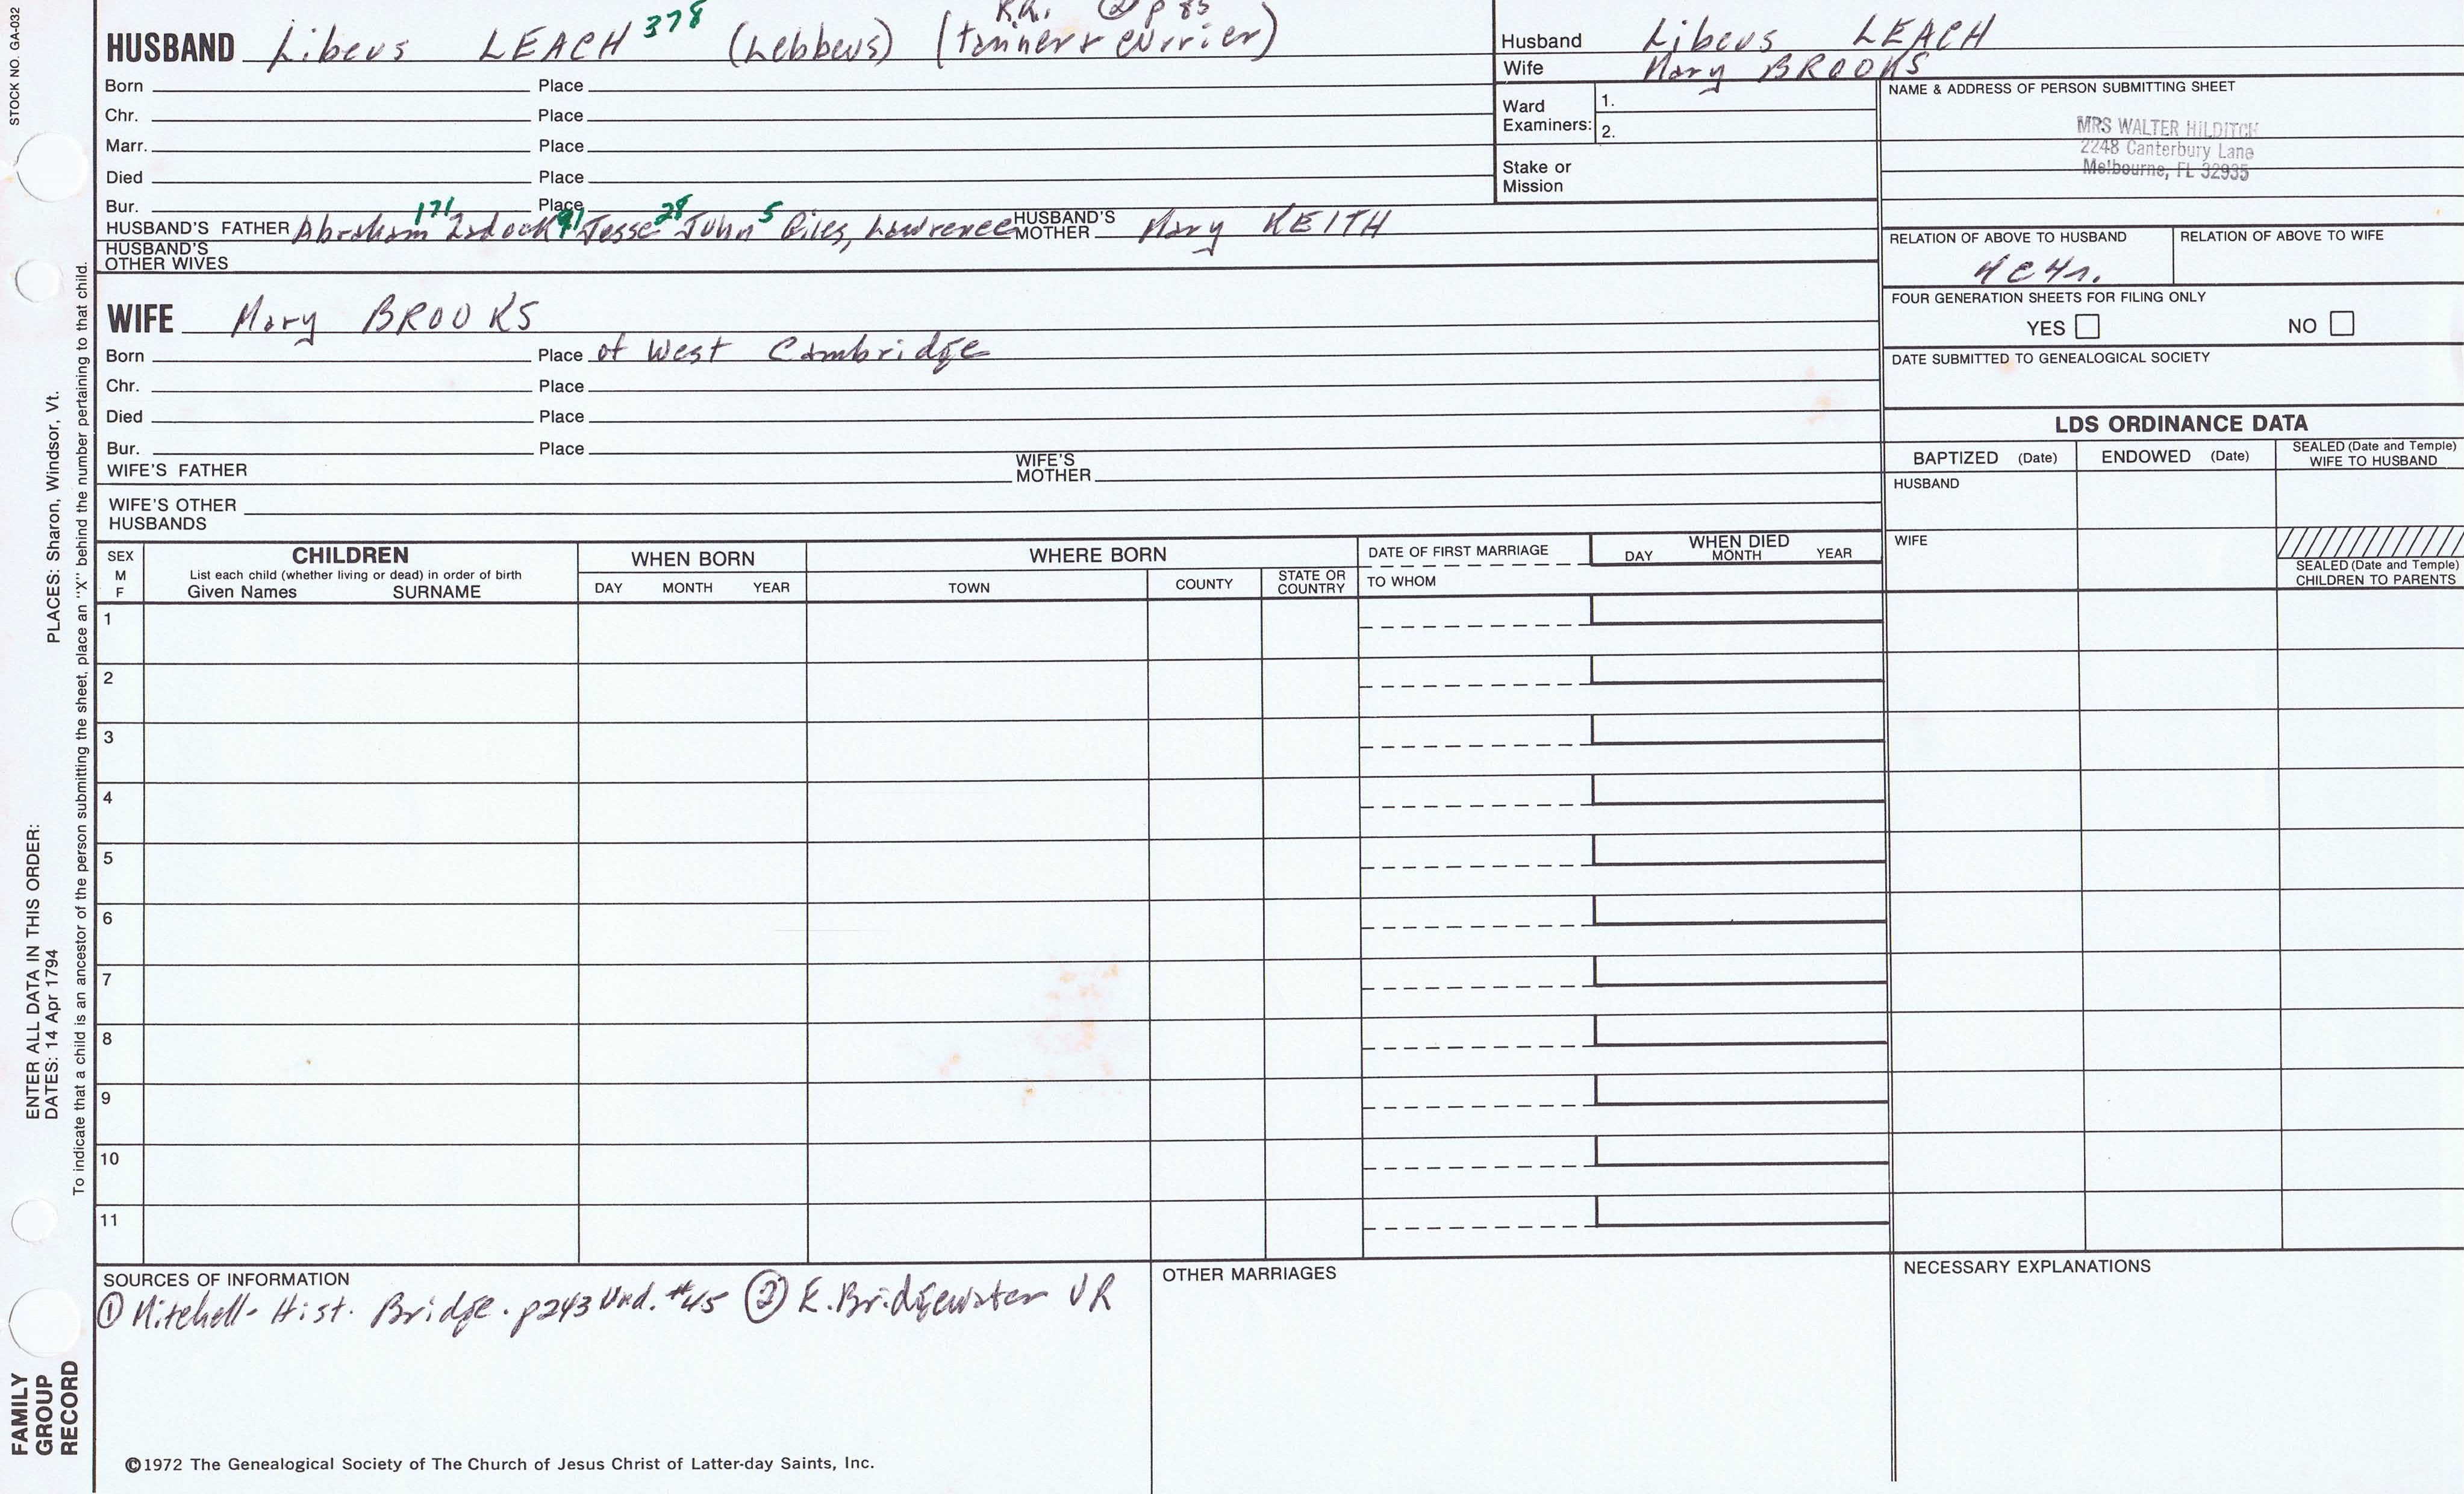 STOCK NO. GA-032
② p 85
HUSBAND Libeus LEACH 378 (Lebbeus) (tanner & currier)
Born Place
Chr. Place
Marr. Place
Died Place
Bur. Place
HUSBAND'S FATHER Abraham 171 Zadock 91 Jesse 28 John 5 Giles, Lawrence HUSBAND'S MOTHER Mary KEITH
HUSBAND'S OTHER WIVES
WIFE Mary BROOKS
Born Place of West Cambridge
Chr. Place
Died Place
Bur. Place
WIFE'S FATHER WIFE'S MOTHER
WIFE'S OTHER HUSBANDS
Husband Libeus LEACH
Wife Mary BROOKS
Ward Examiners: 1.
2.
Stake or Mission
NAME & ADDRESS OF PERSON SUBMITTING SHEET
MRS WALTER HILDITCH
2248 Canterbury Lane
Melbourne, FL 32935
RELATION OF ABOVE TO HUSBAND RELATION OF ABOVE TO WIFE
4C4r.
FOUR GENERATION SHEETS FOR FILING ONLY
YES NO
DATE SUBMITTED TO GENEALOGICAL SOCIETY
LDS ORDINANCE DATA
BAPTIZED (Date) ENDOWED (Date) SEALED (Date and Temple) WIFE TO HUSBAND
HUSBAND
WIFE
SEALED (Date and Temple) CHILDREN TO PARENTS
SEX M F
CHILDREN
List each child (whether living or dead) in order of birth
Given Names SURNAME
WHEN BORN
DAY MONTH YEAR
WHERE BORN
TOWN COUNTY STATE OR COUNTRY
DATE OF FIRST MARRIAGE
TO WHOM
WHEN DIED
DAY MONTH YEAR
1
2
3
4
5
6
7
8
9
10
11
SOURCES OF INFORMATION
① Mitchell- Hist. Bridge. p243 Und. #45 ② E. Bridgewater VR
OTHER MARRIAGES
NECESSARY EXPLANATIONS
©1972 The Genealogical Society of The Church of Jesus Christ of Latter-day Saints, Inc.
ENTER ALL DATA IN THIS ORDER:
DATES: 14 Apr 1794 PLACES: Sharon, Windsor, Vt.
To indicate that a child is an ancestor of the person submitting the sheet, place an "X" behind the number pertaining to that child.
FAMILY
GROUP
RECORD